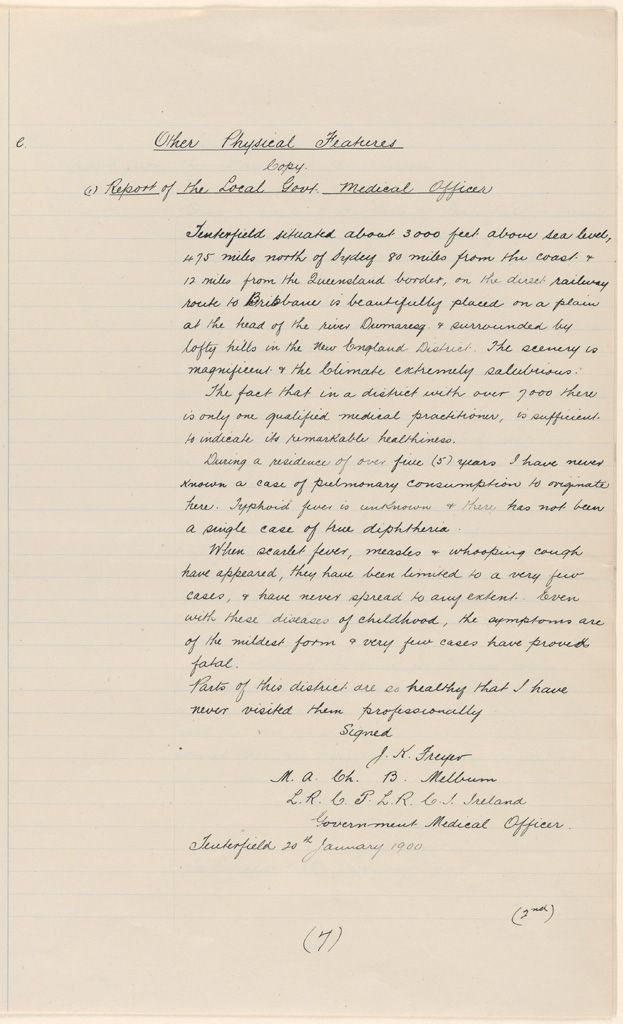 e.
Other Physical Features
Copy.
(1) Report of the Local Govt. Medical Officer
Tenterfield situated about 3000 feet above sea level,
475 miles north of Sydney 80 miles from the coast &
12 miles from the Queensland border, on the direct railway
route to Brisbane is beautifully placed on a plain
at the head of the river Dumaresq & surrounded by
lofty hills in the New England District. The scenery is
magnificent & the Climate extremely salubrious.
The fact that in a district with over 7000 there
is only one qualified medical practitioner, is sufficient
to indicate its remarkable healthiness.
During a residence of over five (5) years I have never
known a case of pulmonary consumption to originate
here. Typhoid fever is unknown & there has not been
a single case of true diphtheria.
When scarlet fever, measles & whooping cough
have appeared, they have been limited to a very few
cases, & have never spread to any extent. Even
with these diseases of childhood, the symptoms are
of the mildest form & very few cases have proved
fatal.
Parts of this district are so healthy that I have
never visited them professionally
Signed
J. K. Freyer
M. A. Ch. B. Melburn
L. R. C. P. L. R. C. S. Ireland
Government Medical Officer.
Tenterfield 20th January 1900
(2nd)
(7)